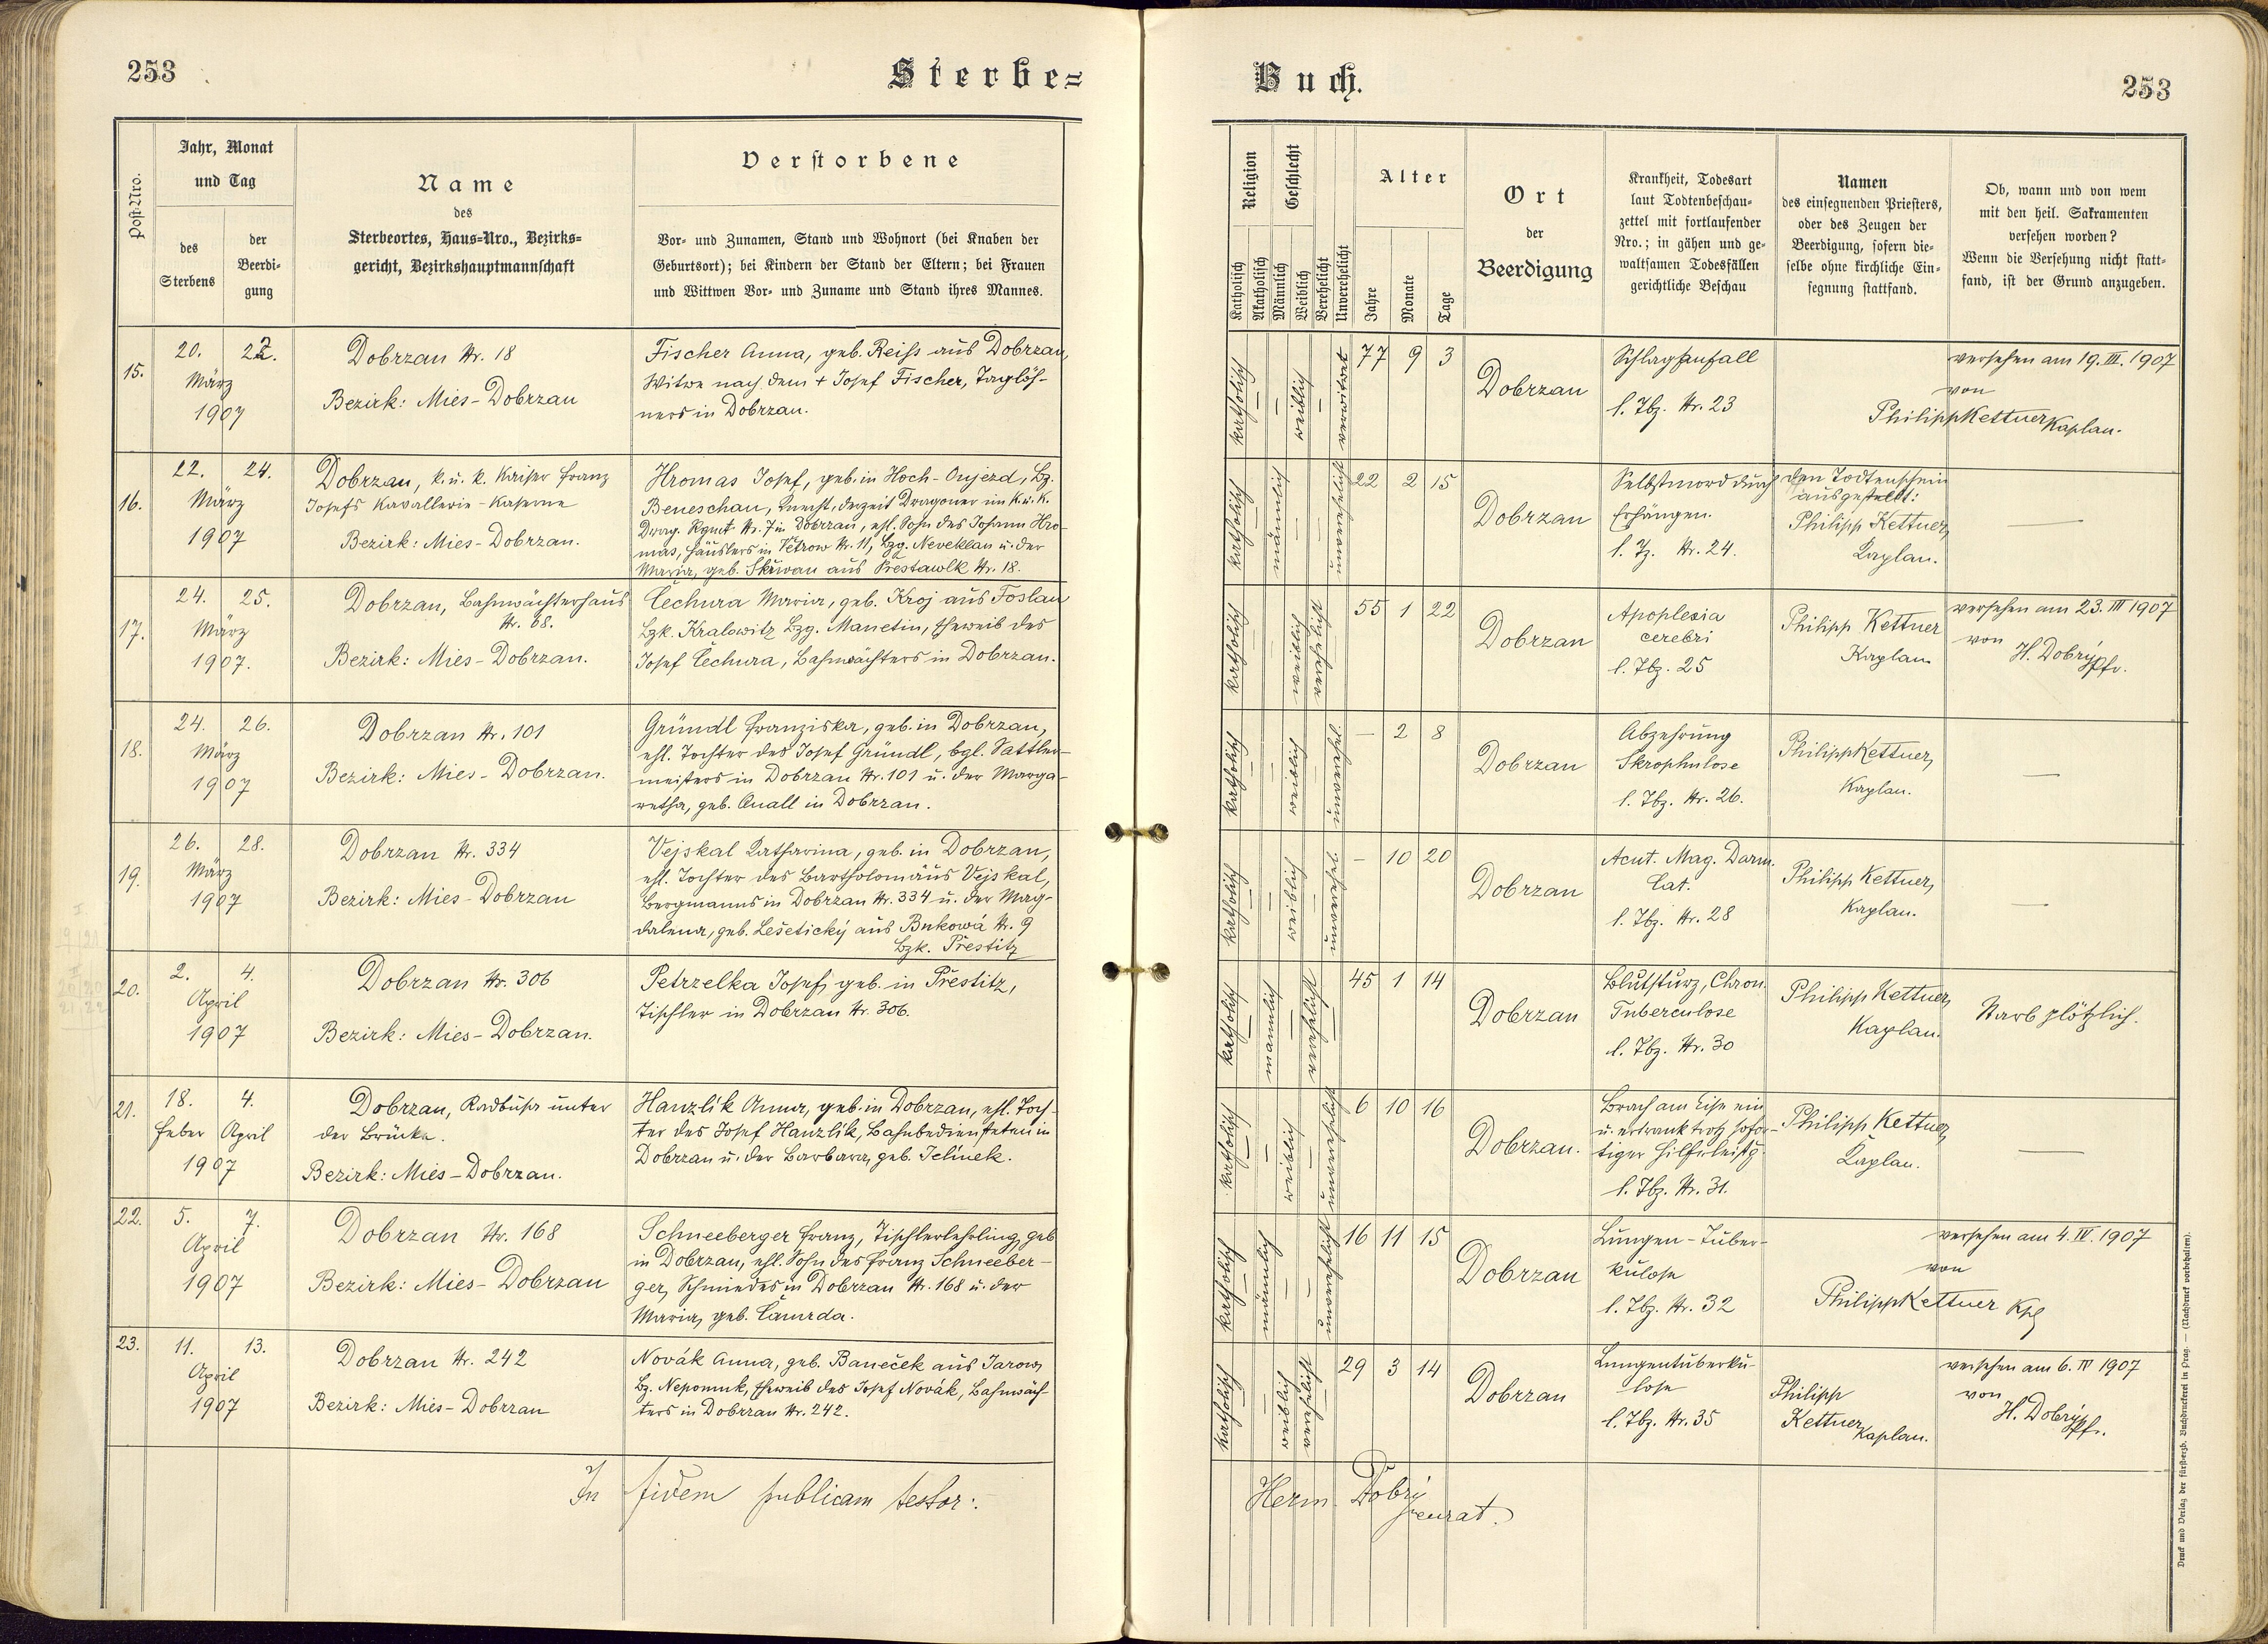 253
Sterbe=
Post-Nro.
Jahr, Monat
und Tag
des
Sterbens
der
Beerdi-
gung
Name
des
Sterbeortes, Haus=Nro., Bezirks=
gericht, Bezirkshauptmannschaft
Verstorbene
Vor- und Zunamen, Stand und Wohnort (bei Knaben der
Geburtsort); bei Kindern der Stand der Eltern; bei Frauen
und Wittwen Vor- und Zuname und Stand ihres Mannes.
15.
20. 22.
März
1907
Dobrzan Nr. 18
Bezirk: Mies-Dobrzan
Fischer Anna, geb. Reiss aus Dobrzan,
Witwe nach dem + Josef Fischer, Taglöh-
ners in Dobrzan.
16.
22. 24.
März
1907
Dobrzan, k. u. k. Kaiser Franz
Josefs Kavallerie-Kaserne
Bezirk: Mies-Dobrzan.
Hromas Josef, geb. in Hoch-Oujezd, Bz.
Beneschau, Knecht, derzeit Dragoner im k. u. k.
Drag. Rgmt. Nr. 7 in Dobrzan, ehl. Sohn des Johann Hro-
mas, Häuslers in Větrow Nr. 11, Bzg. Neveklau u. der
Maria, geb. Skřiwan aus Prestawlk Nr. 18.
17.
24. 25.
März
1907.
Dobrzan, Bahnwächterhaus
Nr. 68.
Bezirk: Mies-Dobrzan.
Čechura Maria, geb. Kroj aus Toslau
Bzk. Kralowitz Bzg. Manetin, Eheweib des
Josef Čechura, Bahnwächters in Dobrzan.
18.
24. 26.
März
1907
Dobrzan Nr. 101
Bezirk: Mies-Dobrzan.
Gründl Franziska, geb. in Dobrzan,
ehl. Tochter des Josef Gründl, bgl. Sattler-
meisters in Dobrzan Nr. 101 u. der Marga-
retha, geb. Quall in Dobrzan.
19.
26. 28.
März
1907
Dobrzan Nr. 334
Bezirk: Mies-Dobrzan
Vejskal Katharina, geb. in Dobrzan,
ehl. Tochter des Bartholomäus Vejskal,
Bergmanns in Dobrzan Nr. 334 u. der Mag-
dalena, geb. Lešetický aus Bukowá Nr. 9
Bzk. Přestitz
20.
2. 4.
April
1907
Dobrzan Nr. 306
Bezirk: Mies-Dobrzan.
Petrzelka Josef, geb. in Přestitz,
Tischler in Dobrzan Nr. 306.
21.
18. 4.
Feber April
1907
Dobrzan, Radbusa unter
der Brücke.
Bezirk: Mies-Dobrzan.
Hanzlík Anna, geb. in Dobrzan, ehl. Toch-
ter des Josef Hanzlík, Bahnbediensteten in
Dobrzan u. der Barbara, geb. Jelínek.
22.
5. 7.
April
1907
Dobrzan Nr. 168
Bezirk: Mies-Dobrzan
Schneeberger Franz, Tischlerlehrling, geb
in Dobrzan, ehl. Sohn des Franz Schneeber-
ger, Schmiedes in Dobrzan Nr. 168 u. der
Maria, geb. Čamrda.
23.
11. 13.
April
1907
Dobrzan Nr. 242
Bezirk: Mies-Dobrzan
Novák Anna, geb. Baneček aus Jarow,
Bz. Nepomuk, Eheweib des Josef Novák, Bahnwäch-
ters in Dobrzan Nr. 242.
In fidem publicam testor:
Buch.
253
Religion
Katholisch
Akatholisch
Geschlecht
Männlich
Weiblich
Verehelicht
Unverehelicht
Alter
Jahre
Monate
Tage
Ort
der
Beerdigung
Krankheit, Todesart
laut Todtenbeschau-
zettel mit fortlaufender
Nro.; in gähen und ge-
waltsamen Todesfällen
gerichtliche Beschau
Namen
des einsegnenden Priesters,
oder des Zeugen der
Beerdigung, sofern die-
selbe ohne kirchliche Ein-
segnung stattfand.
Ob, wann und von wem
mit den heil. Sakramenten
versehen worden?
Wenn die Versehung nicht statt-
fand, ist der Grund anzugeben.
katholisch — weiblich — verwitwet
77 9 3
Dobrzan
Schlaganfall
l. Tbz. Nr. 23
versehen am 19. III. 1907
von
Philipp Kettner Kaplan.
katholisch — männlich — — unverehelicht
22 2 15
Dobrzan
Selbstmord durch
Erhängen.
l. Tz. Nr. 24.
den Todtenschein
ausgestellt:
Philipp Kettner,
Kaplan.
—
katholisch — — weiblich verehelicht —
55 1 22
Dobrzan
Apoplexia
cerebri
l. Tbz. 25
Philipp Kettner
Kaplan
versehen am 23. III 1907
von
H. Dobrý Pfr.
katholisch — — weiblich — unverehel.
— 2 8
Dobrzan
Abzehrung
Skrophulose
l. Tbz. Nr. 26.
Philipp Kettner,
Kaplan.
—
katholisch — — weiblich — unverehel.
— 10 20
Dobrzan
Acut. Mag. Darm.
Cat.
l. Tbz. Nr. 28
Philipp Kettner,
Kaplan.
—
katholisch — männlich — verehelicht —
45 1 14
Dobrzan
Blutsturz, Chron.
Tuberculose
l. Tbz. Nr. 30
Philipp Kettner,
Kaplan.
Starb plötzlich.
katholisch — — weiblich — unverehelicht
6 10 16
Dobrzan.
Brach am Eise ein
u. ertrank trotz sofor-
tiger Hilfeleistg.
l. Tbz. Nr. 31.
Philipp Kettner,
Kaplan.
—
katholisch — männlich — — unverehelicht
16 11 15
Dobrzan
Lungen-Tuber-
kulose
l. Tbz. Nr. 32
versehen am 4. IV. 1907
von
Philipp Kettner Kpl
katholisch — — weiblich verehelicht —
29 3 14
Dobrzan
Lungentuberku-
lose
l. Tbz. Nr. 35
Philipp
Kettner Kaplan.
versehen am 6. IV 1907
von
H. Dobrý Pfr.
Herm. Dobrý
Druck und Verlag der fürsterzb. Buchdruckerei in Prag. — (Nachdruck vorbehalten).